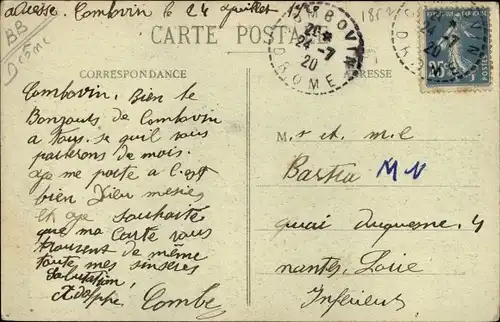 adresse. Combovin le 24 Juillet
BB
Drôme
CARTE POSTALE
COMBOVIN
20*
24-7
20
DROME
25
CORRESPONDANCE
ADRESSE
Combovin, Bien le
Bonjours de Combovin
a tous. se quil vous
parterons de mois.
je me porte a l'est
bien Dieu mersie
et je souhaite
que ma Carte vous
trouvent de même
toutes mes sinseres
Salutation,
Adolphe, Combe
Mr et m.e
Bartra MN
quai duquesne. 4
nantes, Loire
Inférieure